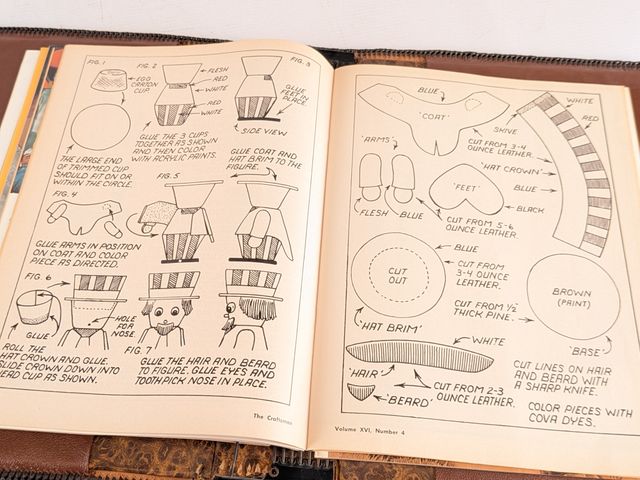 FIG. 1
EGG
CARTON
CUP.
THE LARGE END
OF TRIMMED CUP
SHOULD FIT ON OR
WITHIN THE CIRCLE.
FIG. 2
FLESH
RED
WHITE
RED
WHITE
GLUE THE 3 CUPS
TOGETHER AS SHOWN
AND THEN COLOR
WITH ACRYLIC PAINTS.
FIG. 3
GLUE
FEET IN
PLACE.
SIDE VIEW
GLUE COAT AND
HAT BRIM TO THE
FIGURE.
FIG. 4
GLUE ARMS IN POSITION
ON COAT AND COLOR
PIECE AS DIRECTED.
FIG. 5
FIG. 6
GLUE
HOLE
FOR
NOSE
ROLL THE
HAT CROWN AND GLUE.
SLIDE CROWN DOWN INTO
HEAD CUP AS SHOWN.
FIG. 7
GLUE THE HAIR AND BEARD
TO FIGURE. GLUE EYES AND
TOOTHPICK NOSE IN PLACE.
The Craftsman
BLUE
'COAT'
SKIVE
CUT FROM 3-4
OUNCE LEATHER.
'ARMS'
FLESH
BLUE
'FEET'
BLACK
CUT FROM 5-6
OUNCE LEATHER
WHITE
RED
'HAT CROWN'
BLUE
CUT
OUT
BLUE
CUT FROM
3-4 OUNCE
LEATHER.
'HAT BRIM'
CUT FROM 1/2"
THICK PINE.
BROWN
(PAINT)
'BASE'
WHITE
'HAIR'
'BEARD'
CUT FROM 2-3
OUNCE LEATHER.
CUT LINES ON HAIR
AND BEARD WITH
A SHARP KNIFE.
COLOR PIECES WITH
COVA DYES.
Volume XVI, Number 4